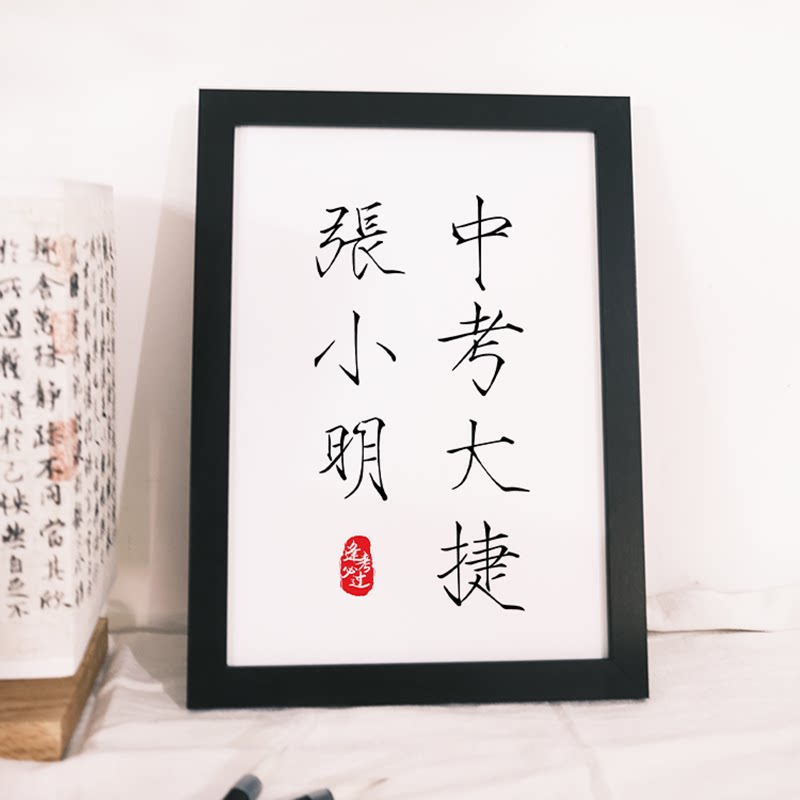 中考大捷
張小明
逢考
必过
趣舍萬殊靜躁不同當其欣
於所遇暫得於己快然自足不